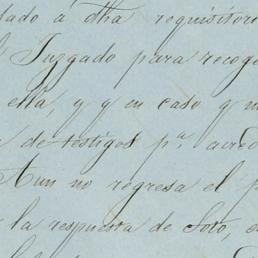 dado á dha requisitori
Juzgado para recog
ella, y q en caso q n
de testigos p.a acred
Aun no regresa el p
la respuesta de Soto,